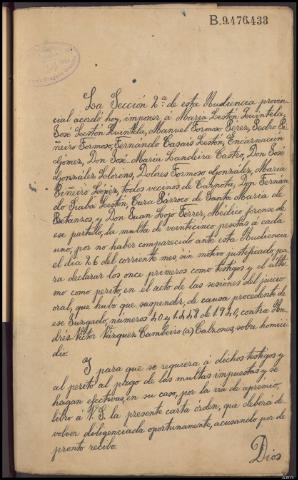 B.9.476.433
La Sección 2ª de esta Audiencia provin-
cial acordó hoy, imponer a María Lestón Quintela,
José Lestón Quintela, Manuel Formoso Pérez, Pedro Pi-
ñeiro Formoso, Fernando Casais Lestón, Encarnación
Gómez, Don José María Bandeira Castro, Don José
González Llorens, Dolores Formoso González, María
Piñeiro López, todos vecinos de Carnota, Don Fernan-
do Lestón, Barroso de Santa María de
Betanzos, y Don Juan Lugo Ferrer, Médico forense de
ese partido, la multa de veinticinco pesetas a cada
uno, por no haber comparecido ante esta Audiencia
el día 26 del corriente mes, sin motivo justificado, pa-
ra declarar los once primeros como testigos y el últi-
mo como perito, en el acto de las sesiones del juicio
oral, que hubo que suspender, de causa procedente de
ese Juzgado, números 40 y de 1940, contra An-
drés Víctor Vázquez Cambeiro (a) Calzones, sobre homici-
dio.
Y para que se requiera a dichos testigos y
al perito al pago de las multas impuestas y se
hagan efectivas, en su caso, por la vía de apremio,
libro a V.S. la presente carta órden, que deberá de-
volver diligenciada oportunamente, acusando por de
pronto recibo.
Dios